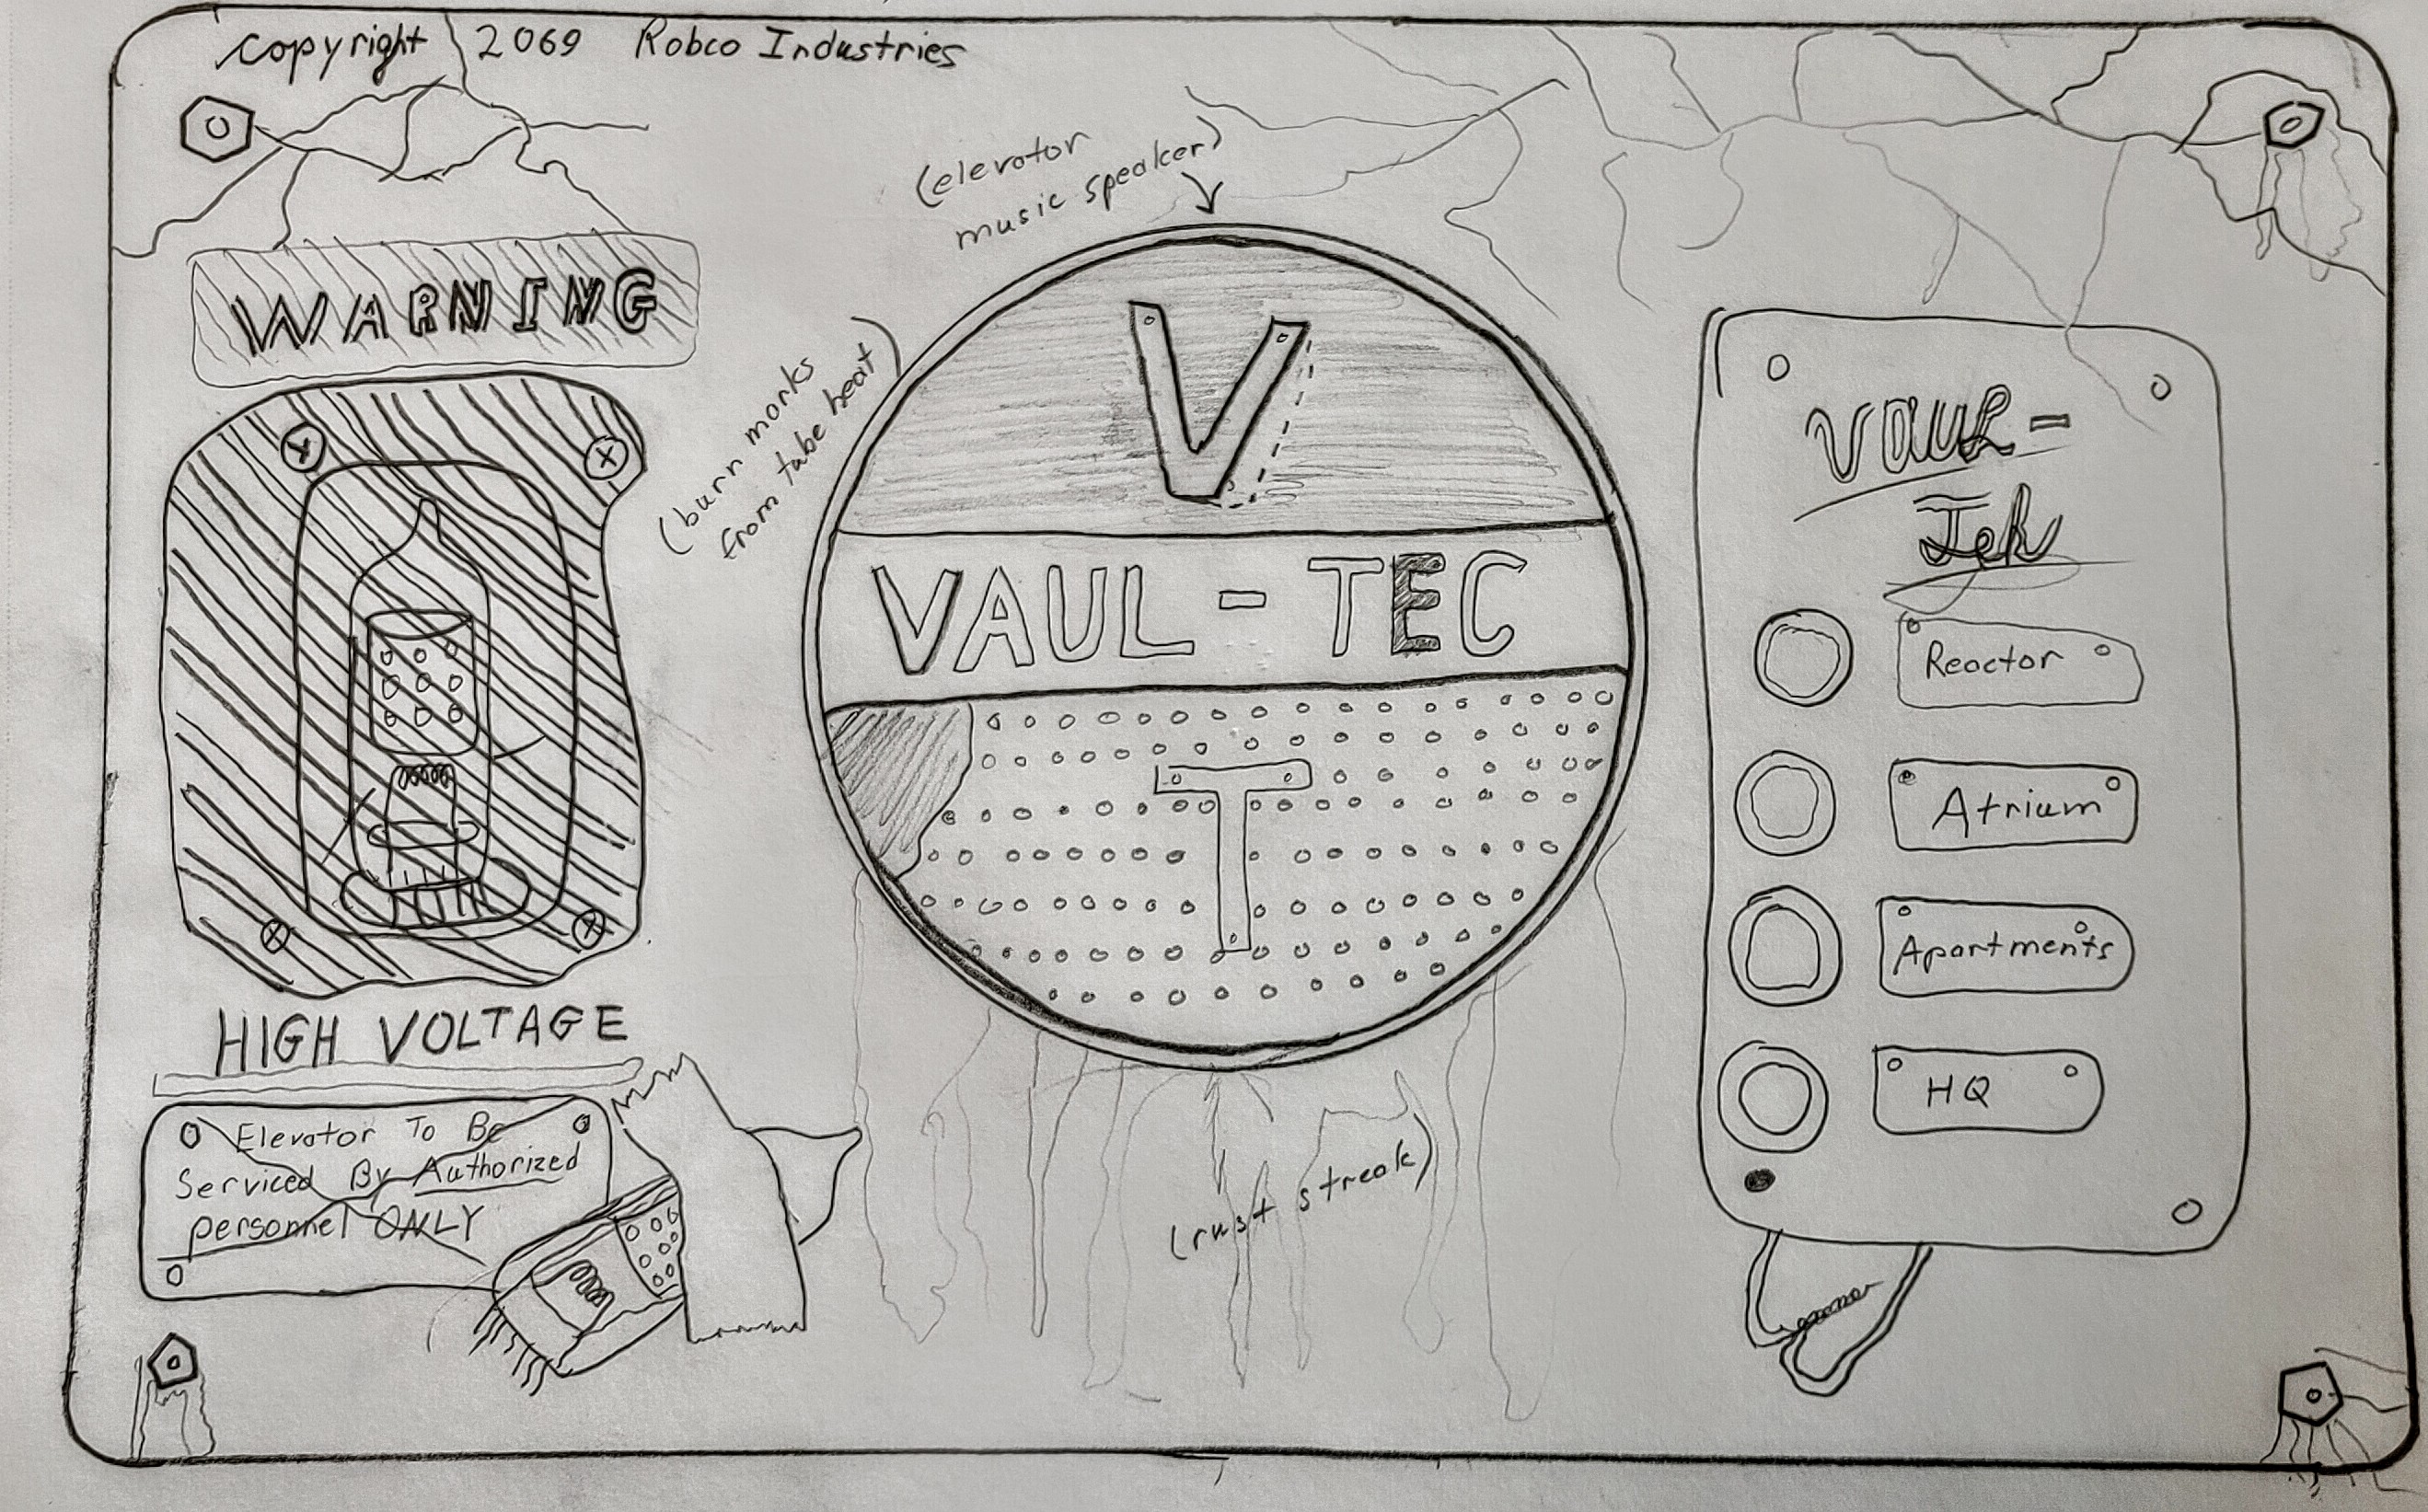 copyright 2069 Robco Industries
(elevator
music speaker)
WARNING
(burn marks
from tube heat)
V
VAUL-TEC
T
HIGH VOLTAGE
Elevator To Be
Serviced By Authorized
personnel ONLY
(rust streak)
VAUL-
Tek
Reactor
Atrium
Apartments
HQ